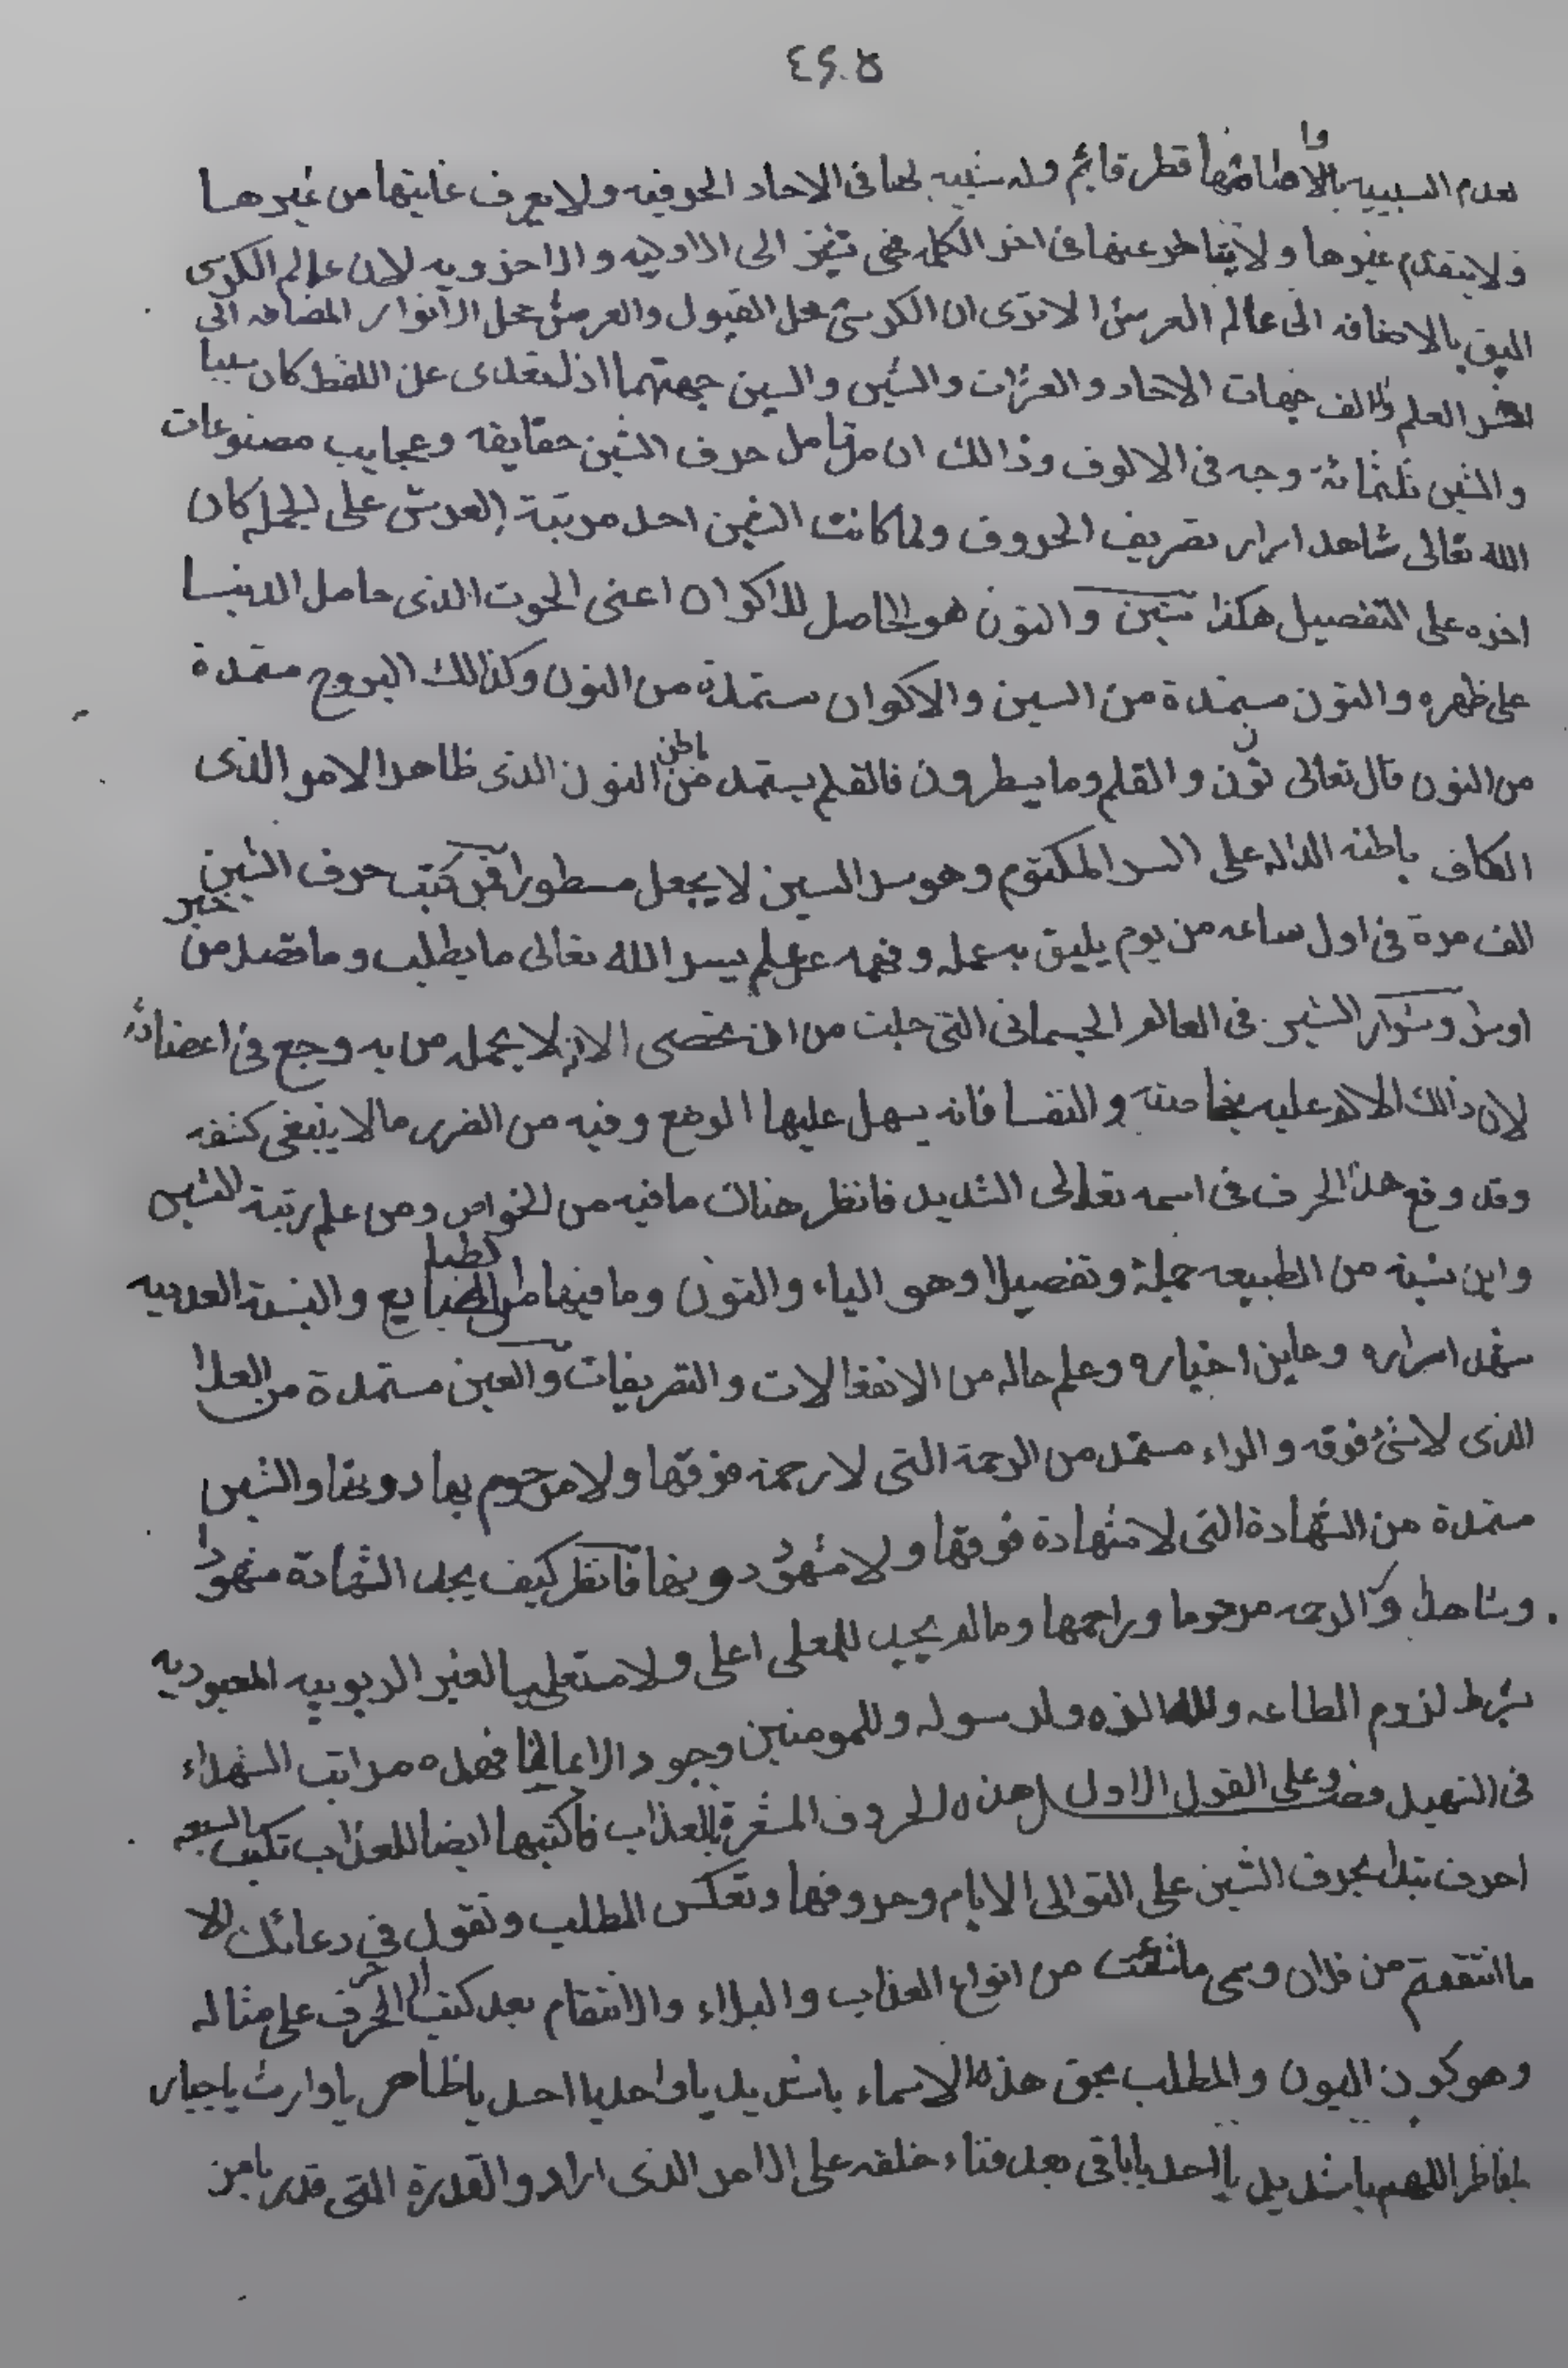 ٤٢٠٥
لعدم السببيه بالاضافه وا قطر قايم وله شبيه لها فى الاحاد الحرفيه ولا يعرف غايتها من غيرها
ولا يتقدم غيرها ولا يتاطر عنها فى اخر الكلمه فهى تشير الى الاوليه والاخرويه لان عالم الكرسى
اليق بالاضافه الى عالم العرش الا ترى ان الكرسى محل القبول والعرش محل الانوار المضافه الى
العلم والف جهات الاحاد والعشرات والشين والسين جهتهما اذ تعدى عن اللفظ كان سببا
والشين ثلثمائة وجه فى الالوف وذالك ان من تامل حرف الشين حقايقه وعجايب مصنوعات
الله تعالى شاهد اسرار تصريف الحروف ولما كانت الشين احد مرتبة العرش على الجمله كان
اخره على التفصيل هكذا شين والنون هو الحاصل للاكوان اعنى الحوت الذى حامل الدنيا
على ظهره والنون مستمدة من السين والاكوان مستمدة من النون وكذالك البروج مستمدة
من النون قال تعالى نون ن والقلم وما يسطرون فالقلم يستمد من باطن النون الذى ظاهر الامر الذى
الكاف باطنه الداله على السر المكتوم وهو سر السين لا يجعل مسطورا فمن كتب حرف الشين
الف مرة فى اول ساعه من يوم يليق به عمله وفهمه علم يسر الله تعالى ما يطلب وما تصد من خير
او شر وشوار الشين فى العالم الجسمانى التى جلت من ان تحصى الا انه لا يحمله من به وجع فى اعضائه
لان ذالك الالم عليه بخاصته والنفسا فانه يسهل عليها الوضع وفيه من الضرر ما لا ينبغى كشفه
وقد وقع هذا الحرف فى اسمه تعالى الشديد فانظر هناك ما فيه من الخواص ومن علم رتبة الشين
واين نسبة من الطبيعه جملة وتفصيلا وهو الياء والنون وما فيها من الطبايع والنسبة العدديه
شهد اسراره وعاين اختياره وعلم حاله من الانفعالات والتصريفات والعين مستمدة من العلا
الذى لا شئ فوقه والراء مستمد من الرحمة التى لا رحمة فوقها ولا مرحوم بها دونها والشين
مستمدة من الشهادة التى لا شهادة فوقها ولا مشهود دونها فانظر كيف يجد الشهادة مشهودا
وشاهدا والرحمه مرحوما وراحمها ومالم يجب للمعلى اعلى ولا مستعليا لغير الربوبيه المعبوديه
بشرط لزوم الطاعه ولله العزه ولرسوله وللمومنين وجود الايمان فهذه مراتب الشهداء
فى التهيل وعلى القول الاول هذه الحروف المشعرة بالعذاب فاكتبها ايضا للعذاب تكتب السبعه
احرف تبدا بحرف الشين على التوالى الايام وحروفها وتعكس المطلب وتقول فى دعائك الا
ما انتقمتم من فلان وسمى ما شئت من انواع العذاب والبلاء والانتقام بعد كتب الحرف على مثاله
وهو كون اليون والمطلب بحق هذه الاسماء يا شديد يا واحد يا احد يا ظاهر يا وارث يا جبار
يا فاطر اللهم يا شديد يا احد يا باقى بعد فناء خلقه على الامر الذى اراد والقدرة التى قدر يا من